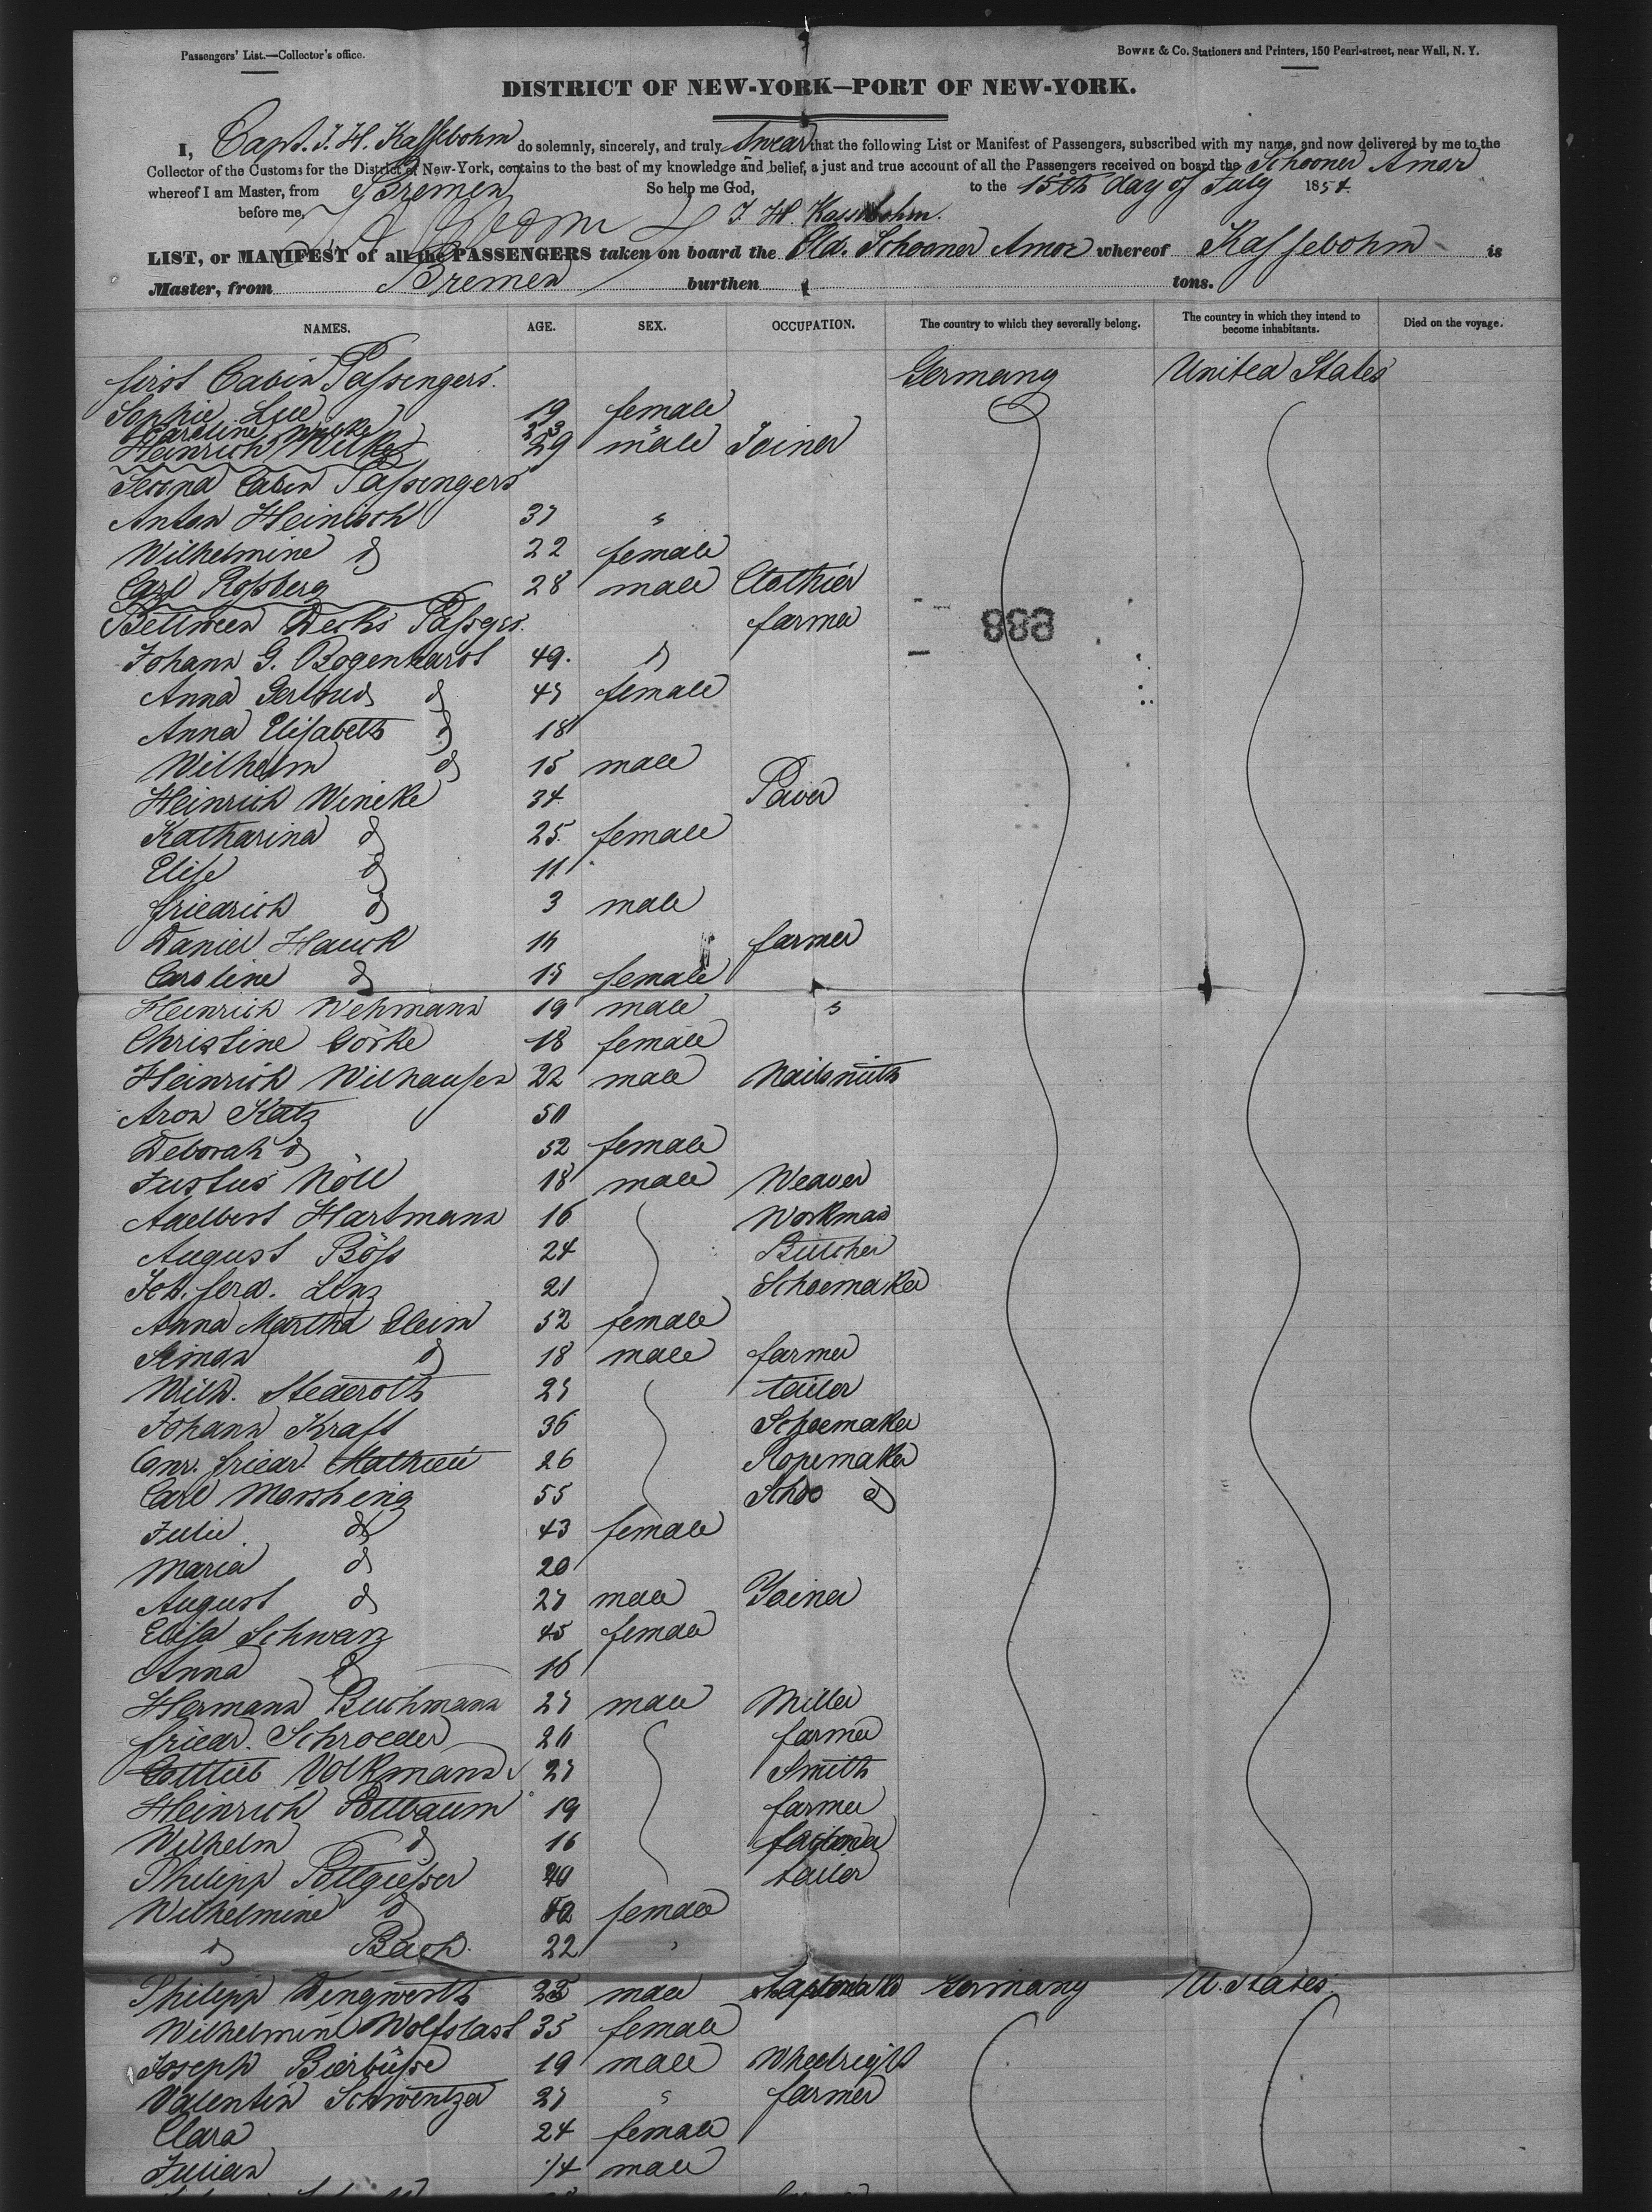 Passengers' List.—Collector's office.
Bowne & Co. Stationers and Printers, 150 Pearl-street, near Wall, N. Y.
DISTRICT OF NEW-YORK—PORT OF NEW-YORK.
I, Capt. J. H. Kassebohm do solemnly, sincerely, and truly swear that the following List or Manifest of Passengers, subscribed with my name, and now delivered by me to the
Collector of the Customs for the District of New-York, contains to the best of my knowledge and belief, a just and true account of all the Passengers received on board the Schooner Amor
whereof I am Master, from Bremen So help me God, to the 15th day of July 1854.
before me, J. H. Kassebohm.
LIST, or MANIFEST of all the PASSENGERS taken on board the Old. Schooner Amor whereof Kassebohm is
Master, from Bremen burthen tons.
NAMES. AGE. SEX. OCCUPATION. The country to which they severally belong. The country in which they intend to become inhabitants. Died on the voyage.
first Cabin Passengers. Germany United States
Sophie Lüe 19 female
Caroline Wilke 23 "
Heinrich Wilke 29 male Joiner
Second Cabin Passengers
Anton Heinisch 37 "
Wilhelmine do 22 female
Carl Rossberg 28 male Clothier
Bettween Decks Passgrs. farmer
888
Johann G. Bogenhardt 49. do
Anna Gertrud do 47 female
Anna Elisabeth do 18
Wilhelm do 15 male
Heinrich Wineke 34 Paver
Katharina do 25. female
Elise do 11
friedrich do 3 male
Daniel Hauck farmer
Caroline do female
Heinrich Wehmann 19 male "
Christine Görke 18 female
Heinrich Wilhausen 22 male Nailsmith
Aron Katz 50
Deborah do 52 female
Justus Nöll 18 male Weaver
Adelbert Hartmann 16 Workman
August Böss 24 Butcher
Joh. ferd. Lenz 21 Schoemaker
Anna Martha Gleim 52 female
Siman do 18 male farmer
Wilh. Stederoth 27 tailor
Johann Kraft 36 Schoemaker
Conr. friedr. Mathieu 26 Ropemaker
Carl Morsheng 55 Schoe do
Julie do 43 female
Maria do 20
August do 27 male Joiner
Elisa Schwarz 45 female
Anna do 16
Hermann Buchmann 27 male Miller
friedr. Schroeder 20 farmer
Gottlieb Volkmann 27 Smith
Heinrich Pollbaum 19 farmer
Wilhelm do 16
Philipp Pottgiesser 40 tailor
Wilhelmine do female
do Bach. 22 "
Philipp Dingwerth male Germany U. States
Wilhelmine Wolfslast 35 female
Joseph Bierbüsse 19 male Wheelright
Valentin Schwentzer 27 " farmer
Clara 24 female
Julian /4 male